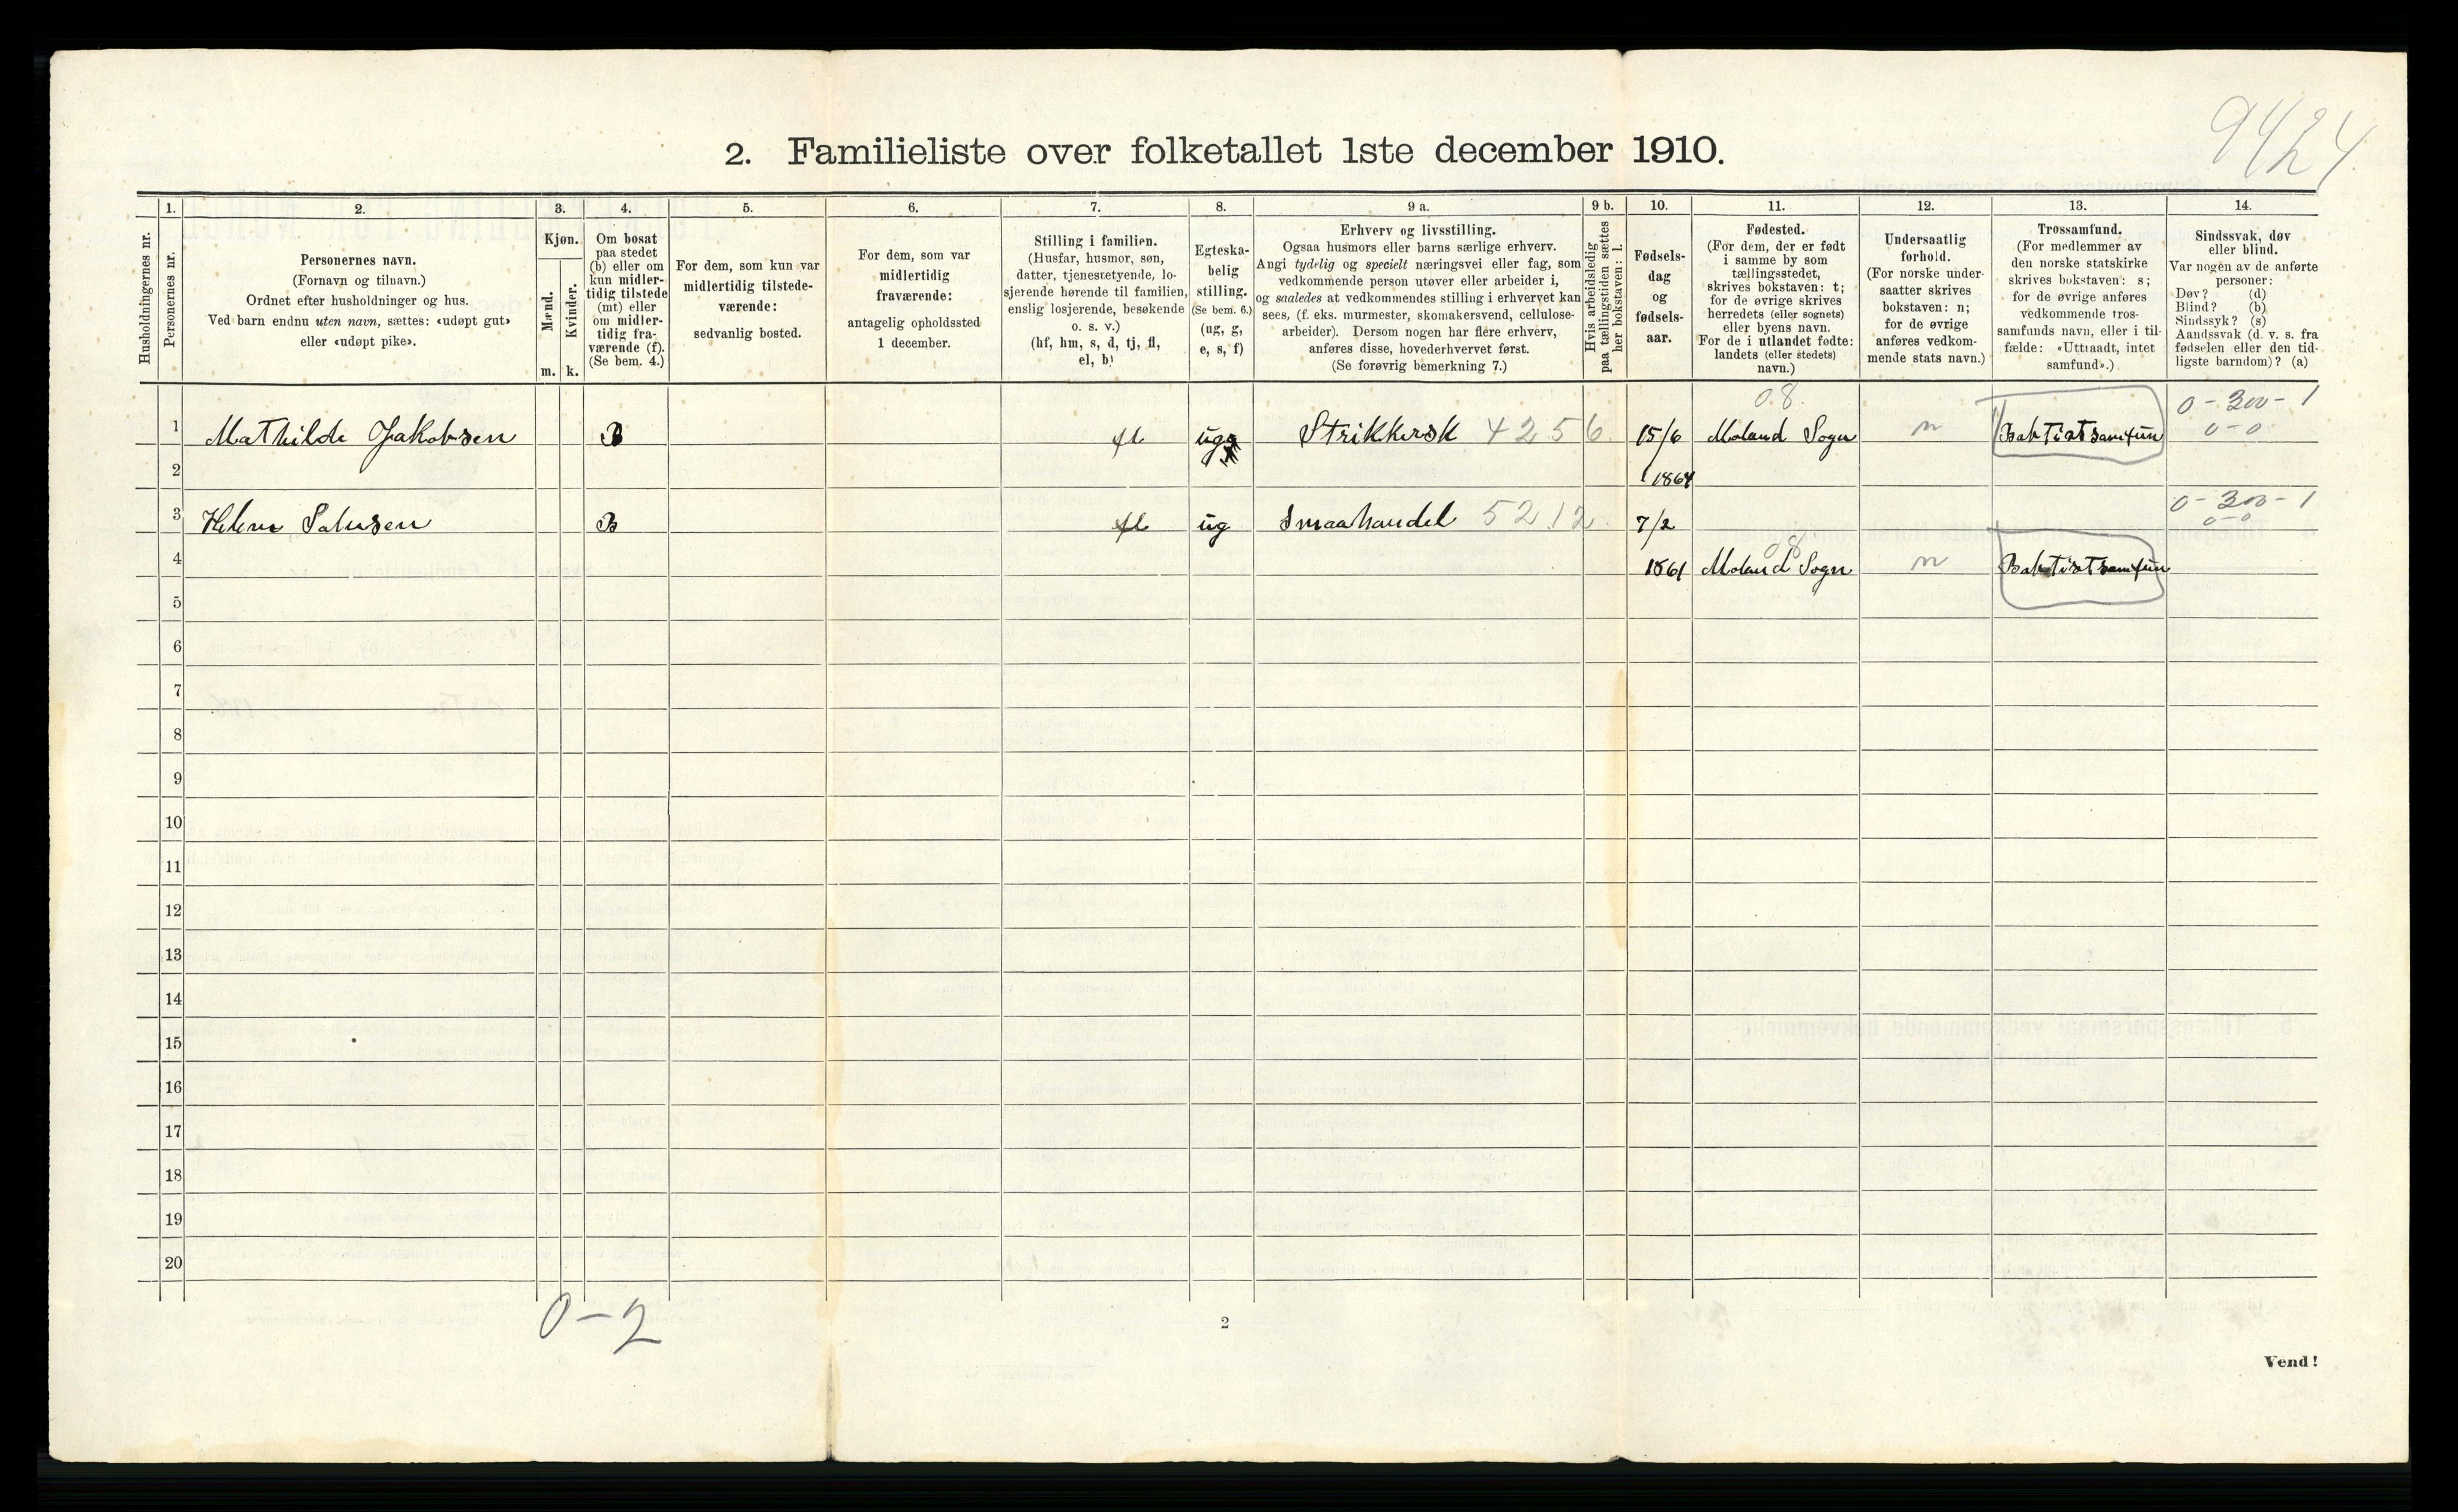 9424
2. Familieliste over folketallet 1ste december 1910.
Husholdningernes nr.
1.
Personernes nr.
2.
Personernes navn.
(Fornavn og tilnavn.)
Ordnet efter husholdninger og hus.
Ved barn endnu uten navn, sættes: «udøpt gut»
eller «udøpt pike».
3.
Kjøn.
Mænd.
Kvinder.
m. k.
4.
Om bosat
paa stedet
(b) eller om
kun midler-
tidig tilstede
(mt) eller
om midler-
tidig fra-
værende (f).
(Se bem. 4.)
5.
For dem, som kun var
midlertidig tilstede-
værende:
sedvanlig bosted.
6.
For dem, som var
midlertidig
fraværende:
antagelig opholdssted
1 december.
7.
Stilling i familien.
(Husfar, husmor, søn,
datter, tjenestetyende, lo-
sjerende hørende til familien,
enslig losjerende, besøkende
o. s. v.)
(hf, hm, s, d, tj, fl,
el, b)
8.
Egteska-
belig
stilling.
(Se bem. 6.)
(ug, g,
e, s, f)
9 a.
Erhverv og livsstilling.
Ogsaa husmors eller barns særlige erhverv.
Angi tydelig og specielt næringsvei eller fag, som
vedkommende person utøver eller arbeider i,
og saaledes at vedkommendes stilling i erhvervet kan
sees, (f. eks. murmester, skomakersvend, cellulose-
arbeider). Dersom nogen har flere erhverv,
anføres disse, hovederhvervet først.
(Se forøvrig bemerkning 7.)
9 b.
Hvis arbeidsledig
paa tællingstiden sættes
her bokstaven: l.
10.
Fødsels-
dag
og
fødsels-
aar.
11.
Fødested.
(For dem, der er født
i samme by som
tællingsstedet,
skrives bokstaven: t;
for de øvrige skrives
herredets (eller sognets)
eller byens navn.
For de i utlandet fødte:
landets (eller stedets)
navn.)
12.
Undersaatlig
forhold.
(For norske under-
saatter skrives
bokstaven: n;
for de øvrige
anføres vedkom-
mende stats navn.)
13.
Trossamfund.
(For medlemmer av
den norske statskirke
skrives bokstaven: s;
for de øvrige anføres
vedkommende tros-
samfunds navn, eller i til-
fælde: «Uttraadt, intet
samfund».)
14.
Sindssvak, døv
eller blind.
Var nogen av de anførte
personer:
Døv? (d)
Blind? (b)
Sindssyk? (s)
Aandssvak (d. v. s. fra
fødselen eller den tid-
ligste barndom)? (a)
08. 0-300-1
1 Mathilde Jakobsen B fl ug Strikkersk 4256 15/6 Moland Sogn n Babtistsamfun 0-0
2 1864
0-300-1
3 B fl ug Smaahandel 5212 7/2 0-0
08
4 1861 Moland Sogn n Babtistsamfun
5
6
7
8
9
10
11
12
13
14
15
16
17
18
19
20
0-2
2
Vend!